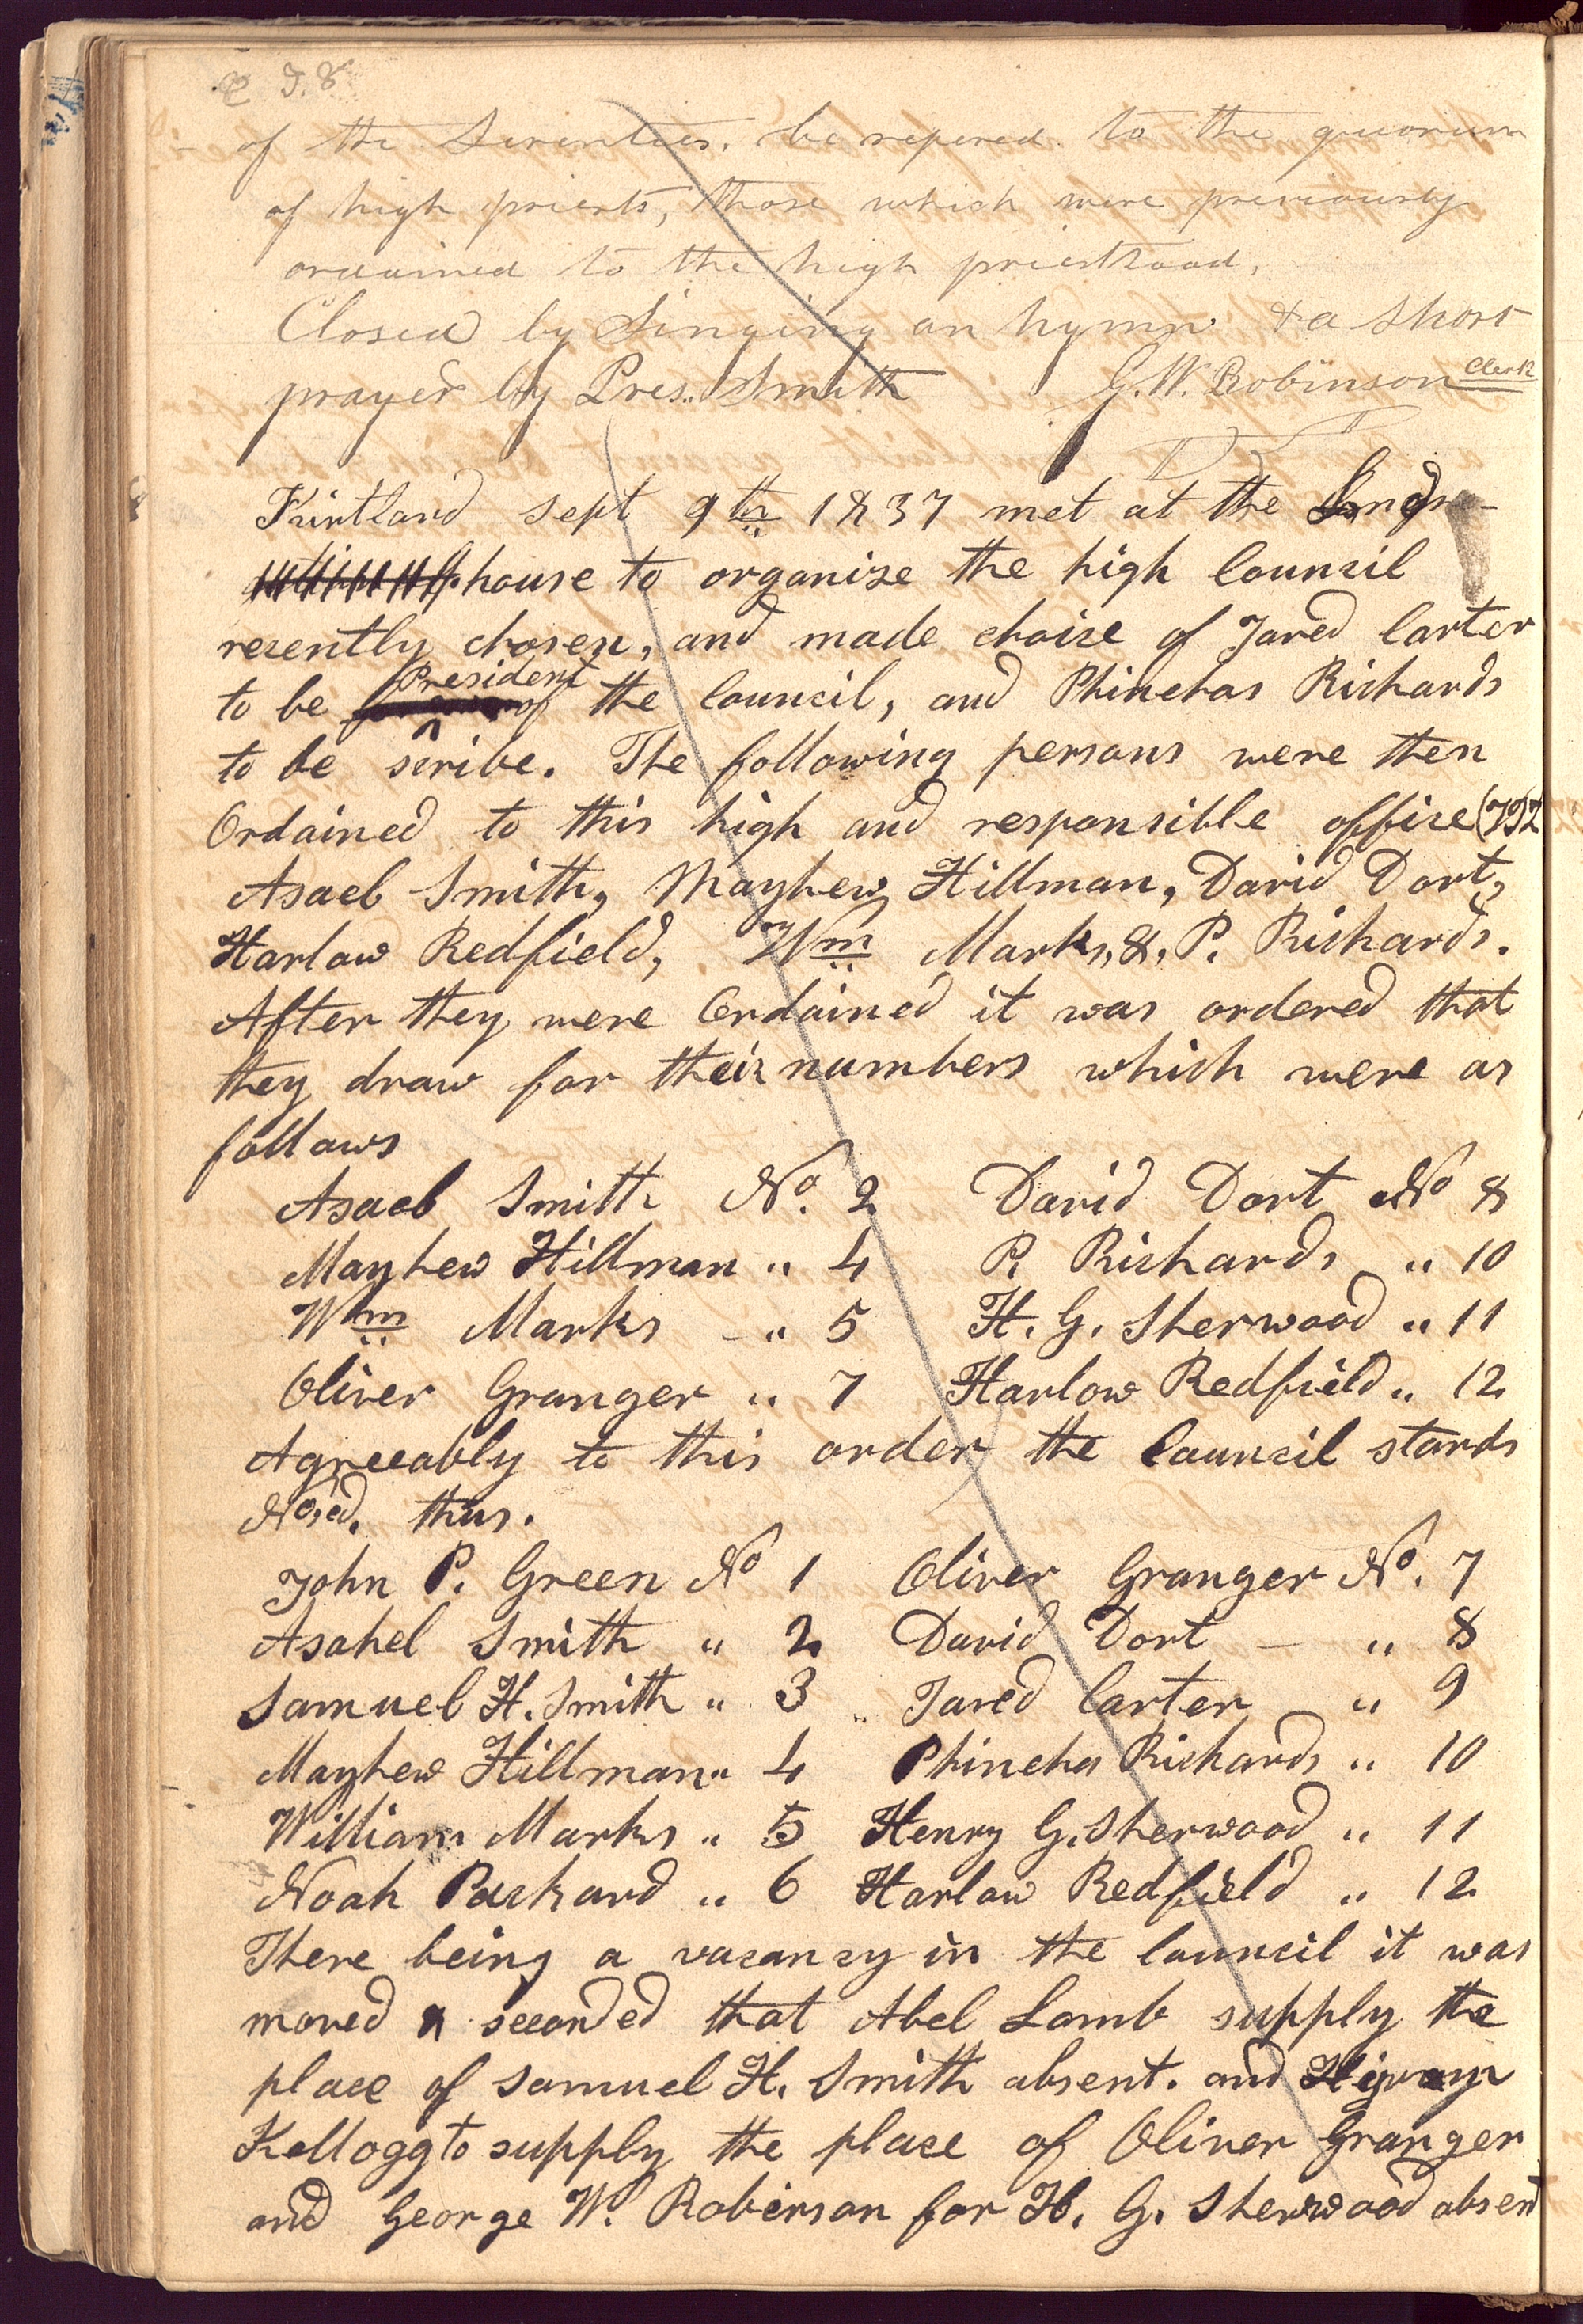 of the Seventies, be refered to the quorum
of high priests, those which were previously
ordained to the high priesthood,
Closed by Singing an hymn & a short
prayer by Pres.. Smith G. W. Robinson Clerk
Kirtland sept 9th 1837 met at the
house to organize the high Council
recently chosen, and made choice of Jared Carter
to be President of the Council, and Phinehas Richards
to be scribe. The following persons were then
Ordained to this high and responsible office (viz
Asael Smith, Mayhew Hillman, David Dort,
Harlow Redfield, Wm Marks, &, P. Richards.
After they were Ordained it was ordered that
they draw for their numbers which were as
follows
Asael Smith No. 2 David Dort No 8
Mayhew Hillman " 4 P. Richards " 10
Wm Marks – " 5 H. G. Sherwood " 11
Oliver Granger " 7 Harlow Redfield " 12
Agreeably to this order the Council stands
No,ed. thus.
John P. Green No 1 Oliver Granger No. 7
Asahel Smith " 2 David Dort – " 8
Samuel H. Smith " 3 Jared Carter " 9
Mayhew Hillman " 4 Phineha Richards " 10
William Marks " 5 Henry G. Sherwood " 11
Noah Packard " 6 Harlow Redfield " 12
There being a vacancy in the Council it was
moved & seconded that Abel Lamb supply the
place of Samuel H. Smith absent. and
Kellogg to supply the place of Oliver Granger
and George W. Robinson for H. G. Sherwood absent